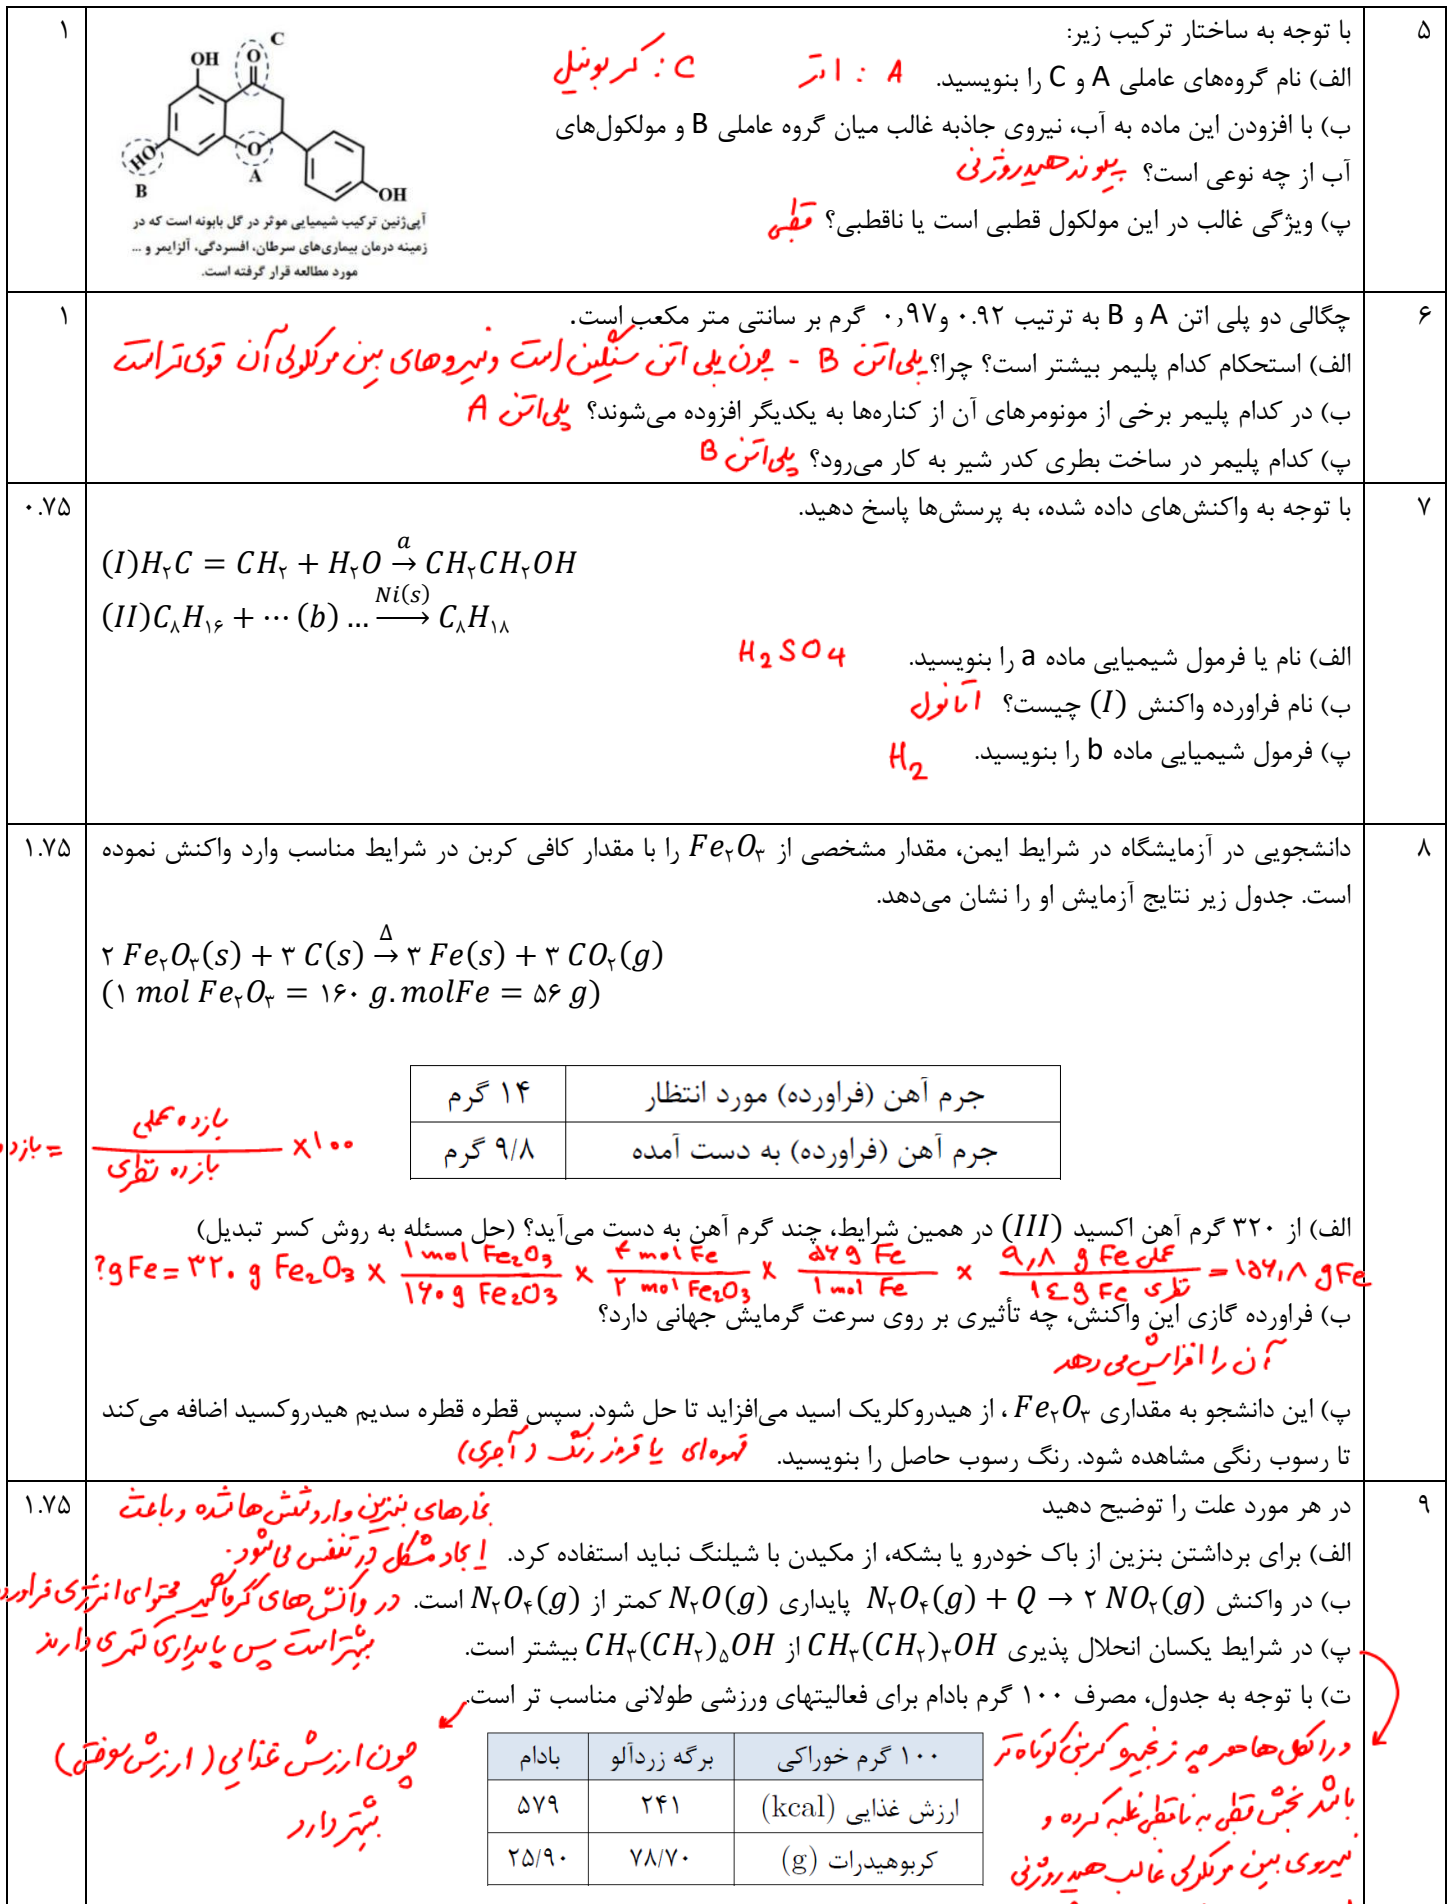 ۵
با توجه به ساختار ترکیب زیر:
۱
الف) نام گروه‌های عاملی A و C را بنویسید. A : اتر C : کربونیل
ب) با افزودن این ماده به آب، نیروی جاذبه غالب میان گروه عاملی B و مولکول‌های
آب از چه نوعی است؟ پیوند هیدروژنی
پ) ویژگی غالب در این مولکول قطبی است یا ناقطبی؟ قطبی
C
OH
O
HO
O
B
A
OH
آپی‌ژنین ترکیب شیمیایی موثر در گل بابونه است که در
زمینه درمان بیماری‌های سرطان، افسردگی، آلزایمر و ...
مورد مطالعه قرار گرفته است.
۶
چگالی دو پلی اتن A و B به ترتیب ۰.۹۲ و۰٫۹۷ گرم بر سانتی متر مکعب است.
۱
الف) استحکام کدام پلیمر بیشتر است؟ چرا؟ پلی اتن B - چون پلی اتن سنگین است و نیروهای بین مولکولی آن قوی تر است
ب) در کدام پلیمر برخی از مونومرهای آن از کناره‌ها به یکدیگر افزوده می‌شوند؟ پلی اتن A
پ) کدام پلیمر در ساخت بطری کدر شیر به کار می‌رود؟ پلی اتن B
۷
با توجه به واکنش‌های داده شده، به پرسش‌ها پاسخ دهید.
۰.۷۵
(I)H₂C = CH₂ + H₂O →a CH₂CH₂OH
(II)C₈H₁₆ + ⋯ (b) … →Ni(s) C₈H₁₈
الف) نام یا فرمول شیمیایی ماده a را بنویسید. H₂SO₄
ب) نام فراورده واکنش (I) چیست؟ اتانول
پ) فرمول شیمیایی ماده b را بنویسید. H₂
۸
دانشجویی در آزمایشگاه در شرایط ایمن، مقدار مشخصی از Fe₂O₃ را با مقدار کافی کربن در شرایط مناسب وارد واکنش نموده
۱.۷۵
است. جدول زیر نتایج آزمایش او را نشان می‌دهد.
۲ Fe₂O₃(s) + ۳ C(s) →Δ ۳ Fe(s) + ۳ CO₂(g)
(۱ mol Fe₂O₃ = ۱۶۰ g.molFe = ۵۶ g)
جرم آهن (فراورده) مورد انتظار ۱۴ گرم
جرم آهن (فراورده) به دست آمده ۹/۸ گرم
= بازده عملی / بازده نظری × ۱۰۰
الف) از ۳۲۰ گرم آهن اکسید (III) در همین شرایط، چند گرم آهن به دست می‌آید؟ (حل مسئله به روش کسر تبدیل)
?g Fe = ۳۲۰ g Fe₂O₃ × 1 mol Fe₂O₃ / ۱۶۰ g Fe₂O₃ × ۴ mol Fe / ۲ mol Fe₂O₃ × ۵۶ g Fe / 1 mol Fe × ۹,۸ g Fe عملی / ۱۴ g Fe نظری = ۱۵۶,۸ g Fe
ب) فراورده گازی این واکنش، چه تأثیری بر روی سرعت گرمایش جهانی دارد؟
آن را افزایش می دهد
پ) این دانشجو به مقداری Fe₂O₃ ، از هیدروکلریک اسید می‌افزاید تا حل شود. سپس قطره قطره سدیم هیدروکسید اضافه می‌کند
تا رسوب رنگی مشاهده شود. رنگ رسوب حاصل را بنویسید. قهوه‌ای یا قرمز رنگ (آجری)
۹
در هر مورد علت را توضیح دهید
۱.۷۵
بخارهای بنزین وارد شش ها شده و باعث
الف) برای برداشتن بنزین از باک خودرو یا بشکه، از مکیدن با شیلنگ نباید استفاده کرد. ایجاد مشکل در تنفس می شود.
ب) در واکنش N₂O₄(g) + Q → ۲ NO₂(g) پایداری N₂O(g) کمتر از N₂O₄(g) است. در واکنش های گرماگیر محتوای انرژی
بیشتر است پس پایداری کمتری دارند
پ) در شرایط یکسان انحلال پذیری CH₃(CH₂)₃OH از CH₃(CH₂)₅OH بیشتر است.
ت) با توجه به جدول، مصرف ۱۰۰ گرم بادام برای فعالیتهای ورزشی طولانی مناسب تر است.
چون ارزش غذایی (ارزش سوختی)
بیشتر دارد
۱۰۰ گرم خوراکی برگه زردآلو بادام
ارزش غذایی (kcal) ۲۴۱ ۵۷۹
کربوهیدرات (g) ۷۸/۷۰ ۲۵/۹۰
در الکل ها هر چه زنجیره کربنی کوتاه تر
باشد بخش قطبی به ناقطبی غلبه کرده و
نیروی بین مولکولی غالب هیدروژنی